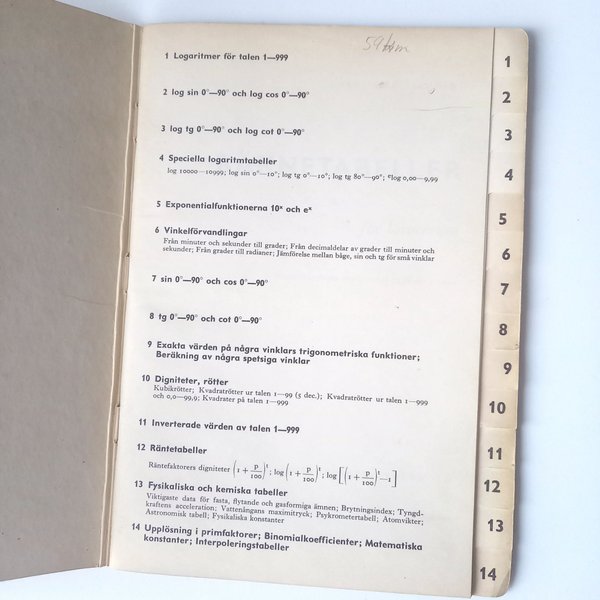 1 Logaritmer för talen 1—999
1
2 log sin 0°—90° och log cos 0°—90°
2
3 log tg 0°—90° och log cot 0°—90°
3
4 Speciella logaritmtabeller
log 10000—10999; log sin 0°—10°; log tg 0°—10°; log tg 80°—90°; ᵉlog 0,00—9,99
4
5 Exponentialfunktionerna 10ˣ och eˣ
5
6 Vinkelförvandlingar
Från minuter och sekunder till grader; Från decimaldelar av grader till minuter och
sekunder; Från grader till radianer; Jämförelse mellan båge, sin och tg för små vinklar
6
7 sin 0°—90° och cos 0°—90°
7
8 tg 0°—90° och cot 0°—90°
8
9 Exakta värden på några vinklars trigonometriska funktioner;
Beräkning av några spetsiga vinklar
9
10 Digniteter, rötter
Kubikrötter; Kvadratrötter ur talen 1—99 (5 dec.); Kvadratrötter ur talen 1—999
och 0,0—99,9; Kvadrater på talen 1—999
10
11 Inverterade värden av talen 1—999
11
12 Räntetabeller
Räntefaktorers digniteter (1 + p/100)ᵗ; log (1 + p/100)ᵗ; log [(1 + p/100)ᵗ—1]
12
13 Fysikaliska och kemiska tabeller
Viktigaste data för fasta, flytande och gasformiga ämnen; Brytningsindex; Tyngd-
kraftens acceleration; Vattenångans maximitryck; Psykrometertabell; Atomvikter;
Astronomisk tabell; Fysikaliska konstanter
13
14 Upplösning i primfaktorer; Binomialkoefficienter; Matematiska
konstanter; Interpoleringstabeller
14